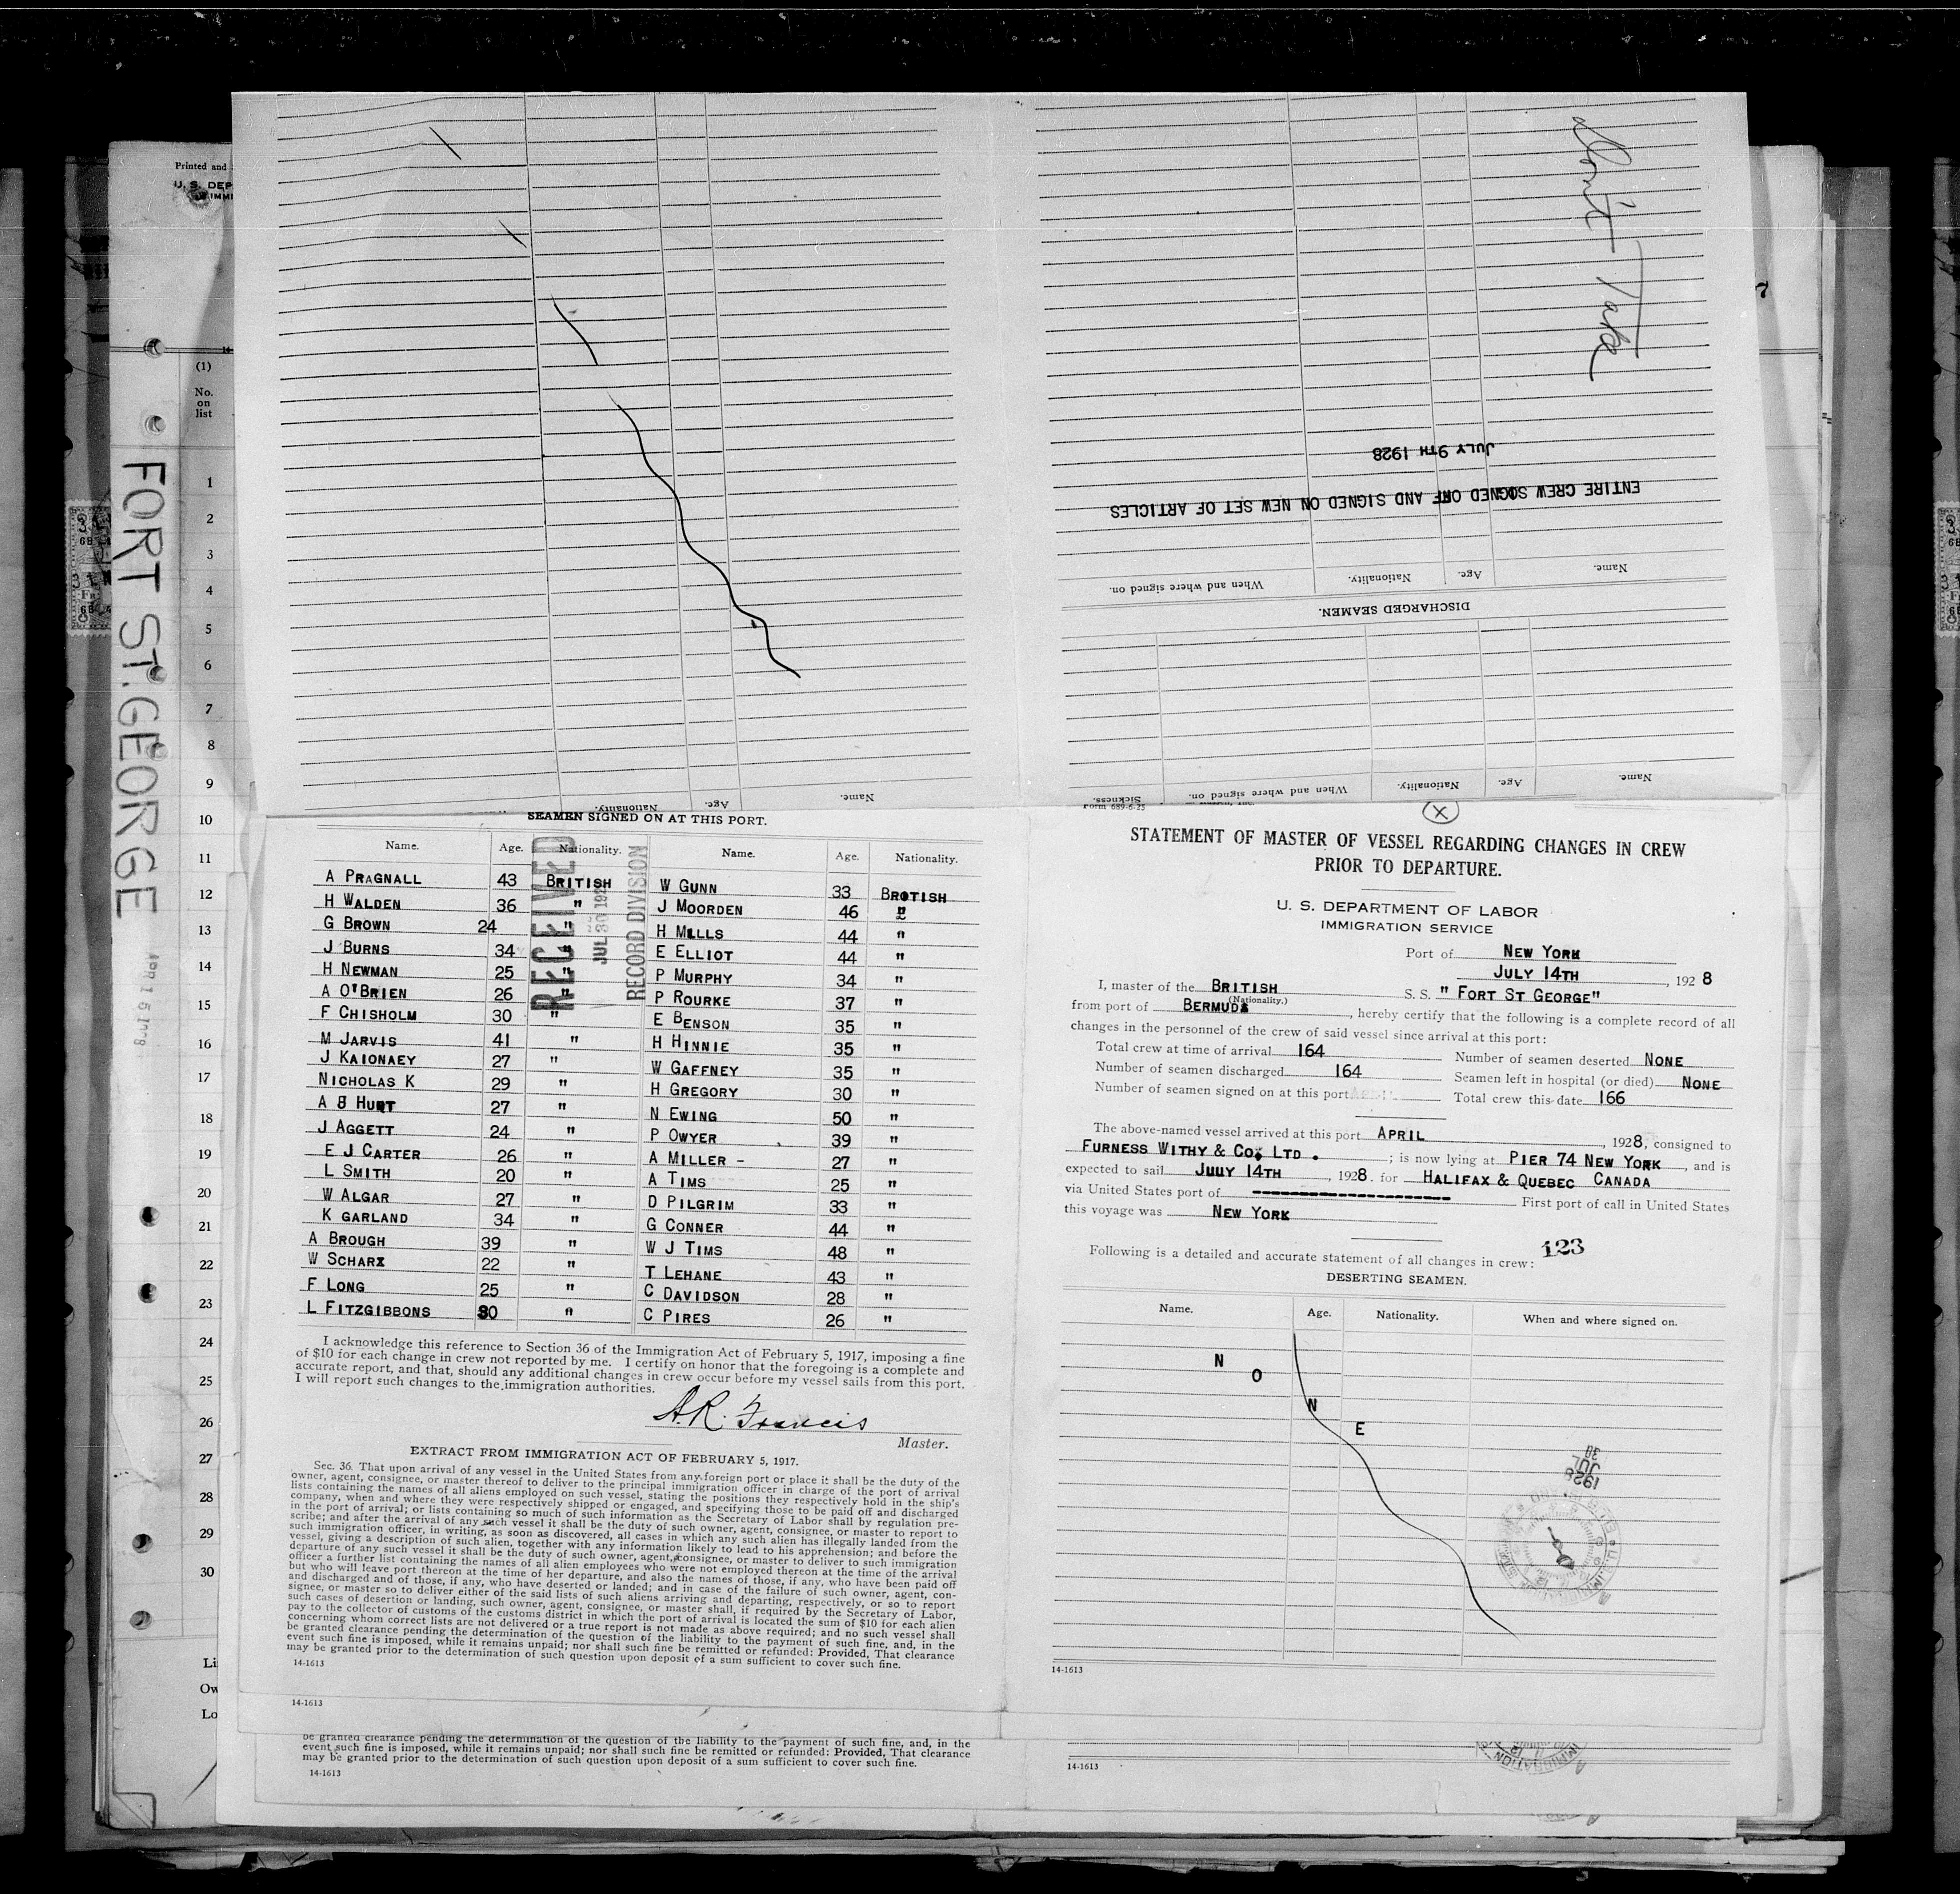 Printed and
U. S. DEP
IMMI
(1)
No.
on
list
1
2
3
4
5
6
7
8
9
10
11
12
13
14
15
16
17
18
19
20
21
22
23
24
25
26
27
28
29
30
Li
Ow
Lo
FORT ST. GEORGE
7
Don't Take
JULY 9TH 1928
ENTIRE CREW SIGNED OFF AND SIGNED ON NEW SET OF ARTICLES
Name. Age. Nationality. When and where signed on.
DISCHARGED SEAMEN.
Name. Age. Nationality. When and where signed on. Sickness.
Name. Age. Nationality.
SEAMEN SIGNED ON AT THIS PORT.
Name. Age. Nationality. Name. Age. Nationality.
A PRAGNALL 43 BRITISH W GUNN 33 BROTISH
H WALDEN 36 " J MOORDEN 46 "
G BROWN 24 " H MLLLS 44 "
J BURNS 34 " E ELLIOT 44 "
H NEWMAN 25 " P MURPHY 34 "
A O'BRIEN 26 " P ROURKE 37 "
F CHISHOLM 30 " E BENSON 35 "
M JARVIS 41 " H HINNIE 35 "
J KAIONAEY 27 " W GAFFNEY 35 "
NICHOLAS K 29 " H GREGORY 30 "
A J HURT 27 " N EWING 50 "
J AGGETT 24 " P OWYER 39 "
E J CARTER 26 " A MILLER - 27 "
L SMITH 20 " A TIMS 25 "
W ALGAR 27 " D PILGRIM 33 "
K GARLAND 34 " G CONNER 44 "
A BROUGH 39 " W J TIMS 48 "
W SCHARX 22 " T LEHANE 43 "
F LONG 25 " C DAVIDSON 28 "
L FITZGIBBONS 30 " C PIRES 26 "
RECEIVED
JUL 30 192
RECORD DIVISION
I acknowledge this reference to Section 36 of the Immigration Act of February 5, 1917, imposing a fine
of $10 for each change in crew not reported by me. I certify on honor that the foregoing is a complete and
accurate report, and that, should any additional changes in crew occur before my vessel sails from this port,
I will report such changes to the immigration authorities.
A.R. Francis
Master.
EXTRACT FROM IMMIGRATION ACT OF FEBRUARY 5, 1917.
Sec. 36. That upon arrival of any vessel in the United States from any foreign port or place it shall be the duty of the
owner, agent, consignee, or master thereof to deliver to the principal immigration officer in charge of the port of arrival
lists containing the names of all aliens employed on such vessel, stating the positions they respectively hold in the ship's
company, when and where they were respectively shipped or engaged, and specifying those to be paid off and discharged
in the port of arrival; or lists containing so much of such information as the Secretary of Labor shall by regulation pre-
scribe; and after the arrival of any such vessel it shall be the duty of such owner, agent, consignee, or master to report to
such immigration officer, in writing, as soon as discovered, all cases in which any such alien has illegally landed from the
vessel, giving a description of such alien, together with any information likely to lead to his apprehension; and before the
departure of any such vessel it shall be the duty of such owner, agent, consignee, or master to deliver to such immigration
officer a further list containing the names of all alien employees who were not employed thereon at the time of the arrival
but who will leave port thereon at the time of her departure, and also the names of those, if any, who have been paid off
and discharged and of those, if any, who have deserted or landed; and in case of the failure of such owner, agent, con-
signee, or master so to deliver either of the said lists of such aliens arriving and departing, respectively, or so to report
such cases of desertion or landing, such owner, agent, consignee, or master shall, if required by the Secretary of Labor,
pay to the collector of customs of the customs district in which the port of arrival is located the sum of $10 for each alien
concerning whom correct lists are not delivered or a true report is not made as above required; and no such vessel shall
be granted clearance pending the determination of the question of the liability to the payment of such fine, and, in the
event such fine is imposed, while it remains unpaid; nor shall such fine be remitted or refunded: Provided, That clearance
may be granted prior to the determination of such question upon deposit of a sum sufficient to cover such fine.
14-1613
14-1613
be granted clearance pending the determination of the question of the liability to the payment of such fine, and, in the
event such fine is imposed, while it remains unpaid; nor shall such fine be remitted or refunded: Provided, That clearance
may be granted prior to the determination of such question upon deposit of a sum sufficient to cover such fine.
14-1613
Form 689-6-25
X
STATEMENT OF MASTER OF VESSEL REGARDING CHANGES IN CREW
PRIOR TO DEPARTURE.
U. S. DEPARTMENT OF LABOR
IMMIGRATION SERVICE
Port of NEW YORK
JULY 14TH, 1928
I, master of the BRITISH S. S. " FORT ST GEORGE"
(Nationality.)
from port of BERMUDA, hereby certify that the following is a complete record of all
changes in the personnel of the crew of said vessel since arrival at this port:
Total crew at time of arrival 164 Number of seamen deserted NONE
Number of seamen discharged 164 Seamen left in hospital (or died) NONE
Number of seamen signed on at this port Total crew this date 166
The above-named vessel arrived at this port APRIL, 1928, consigned to
FURNESS WITHY & CO. LTD.; is now lying at PIER 74 NEW YORK, and is
expected to sail JULY 14TH, 1928. for HALIFAX & QUEBEC CANADA
via United States port of ---------------- First port of call in United States
this voyage was NEW YORK
123
Following is a detailed and accurate statement of all changes in crew:
DESERTING SEAMEN.
Name. Age. Nationality. When and where signed on.
N O N E
JUL
1928
14-1613
14-1613